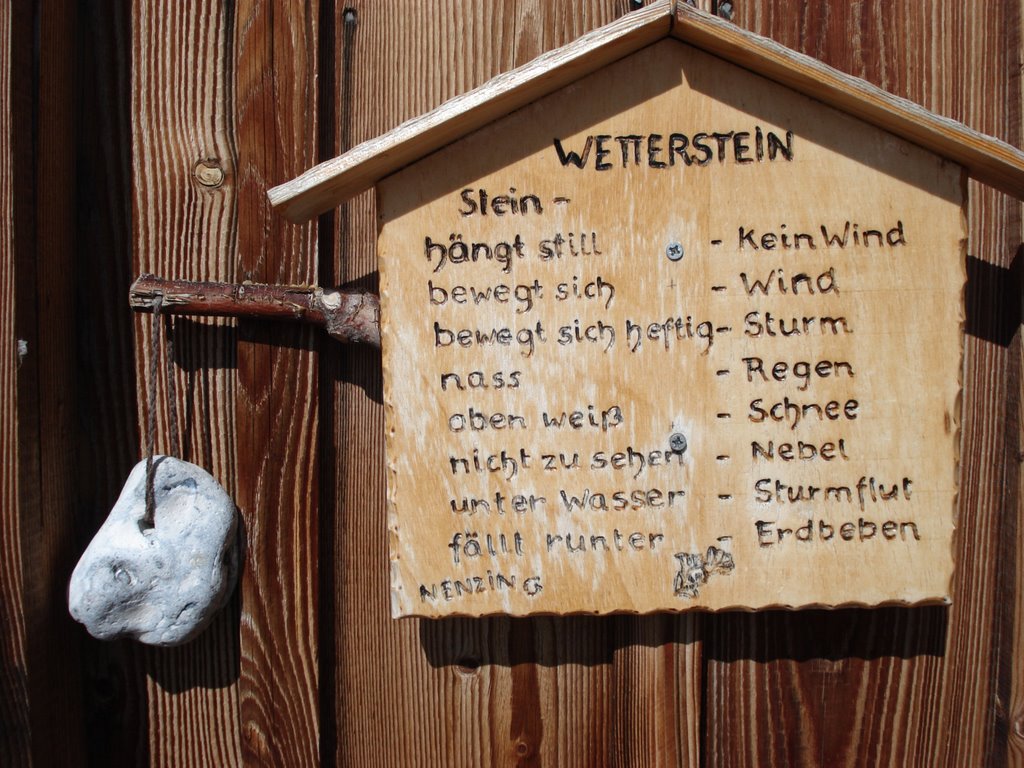 WETTERSTEIN
Stein -
hängt still - Kein Wind
bewegt sich - Wind
bewegt sich heftig - Sturm
nass - Regen
oben weiß - Schnee
nicht zu sehen - Nebel
unter Wasser - Sturmflut
fällt runter - Erdbeben
NENZING